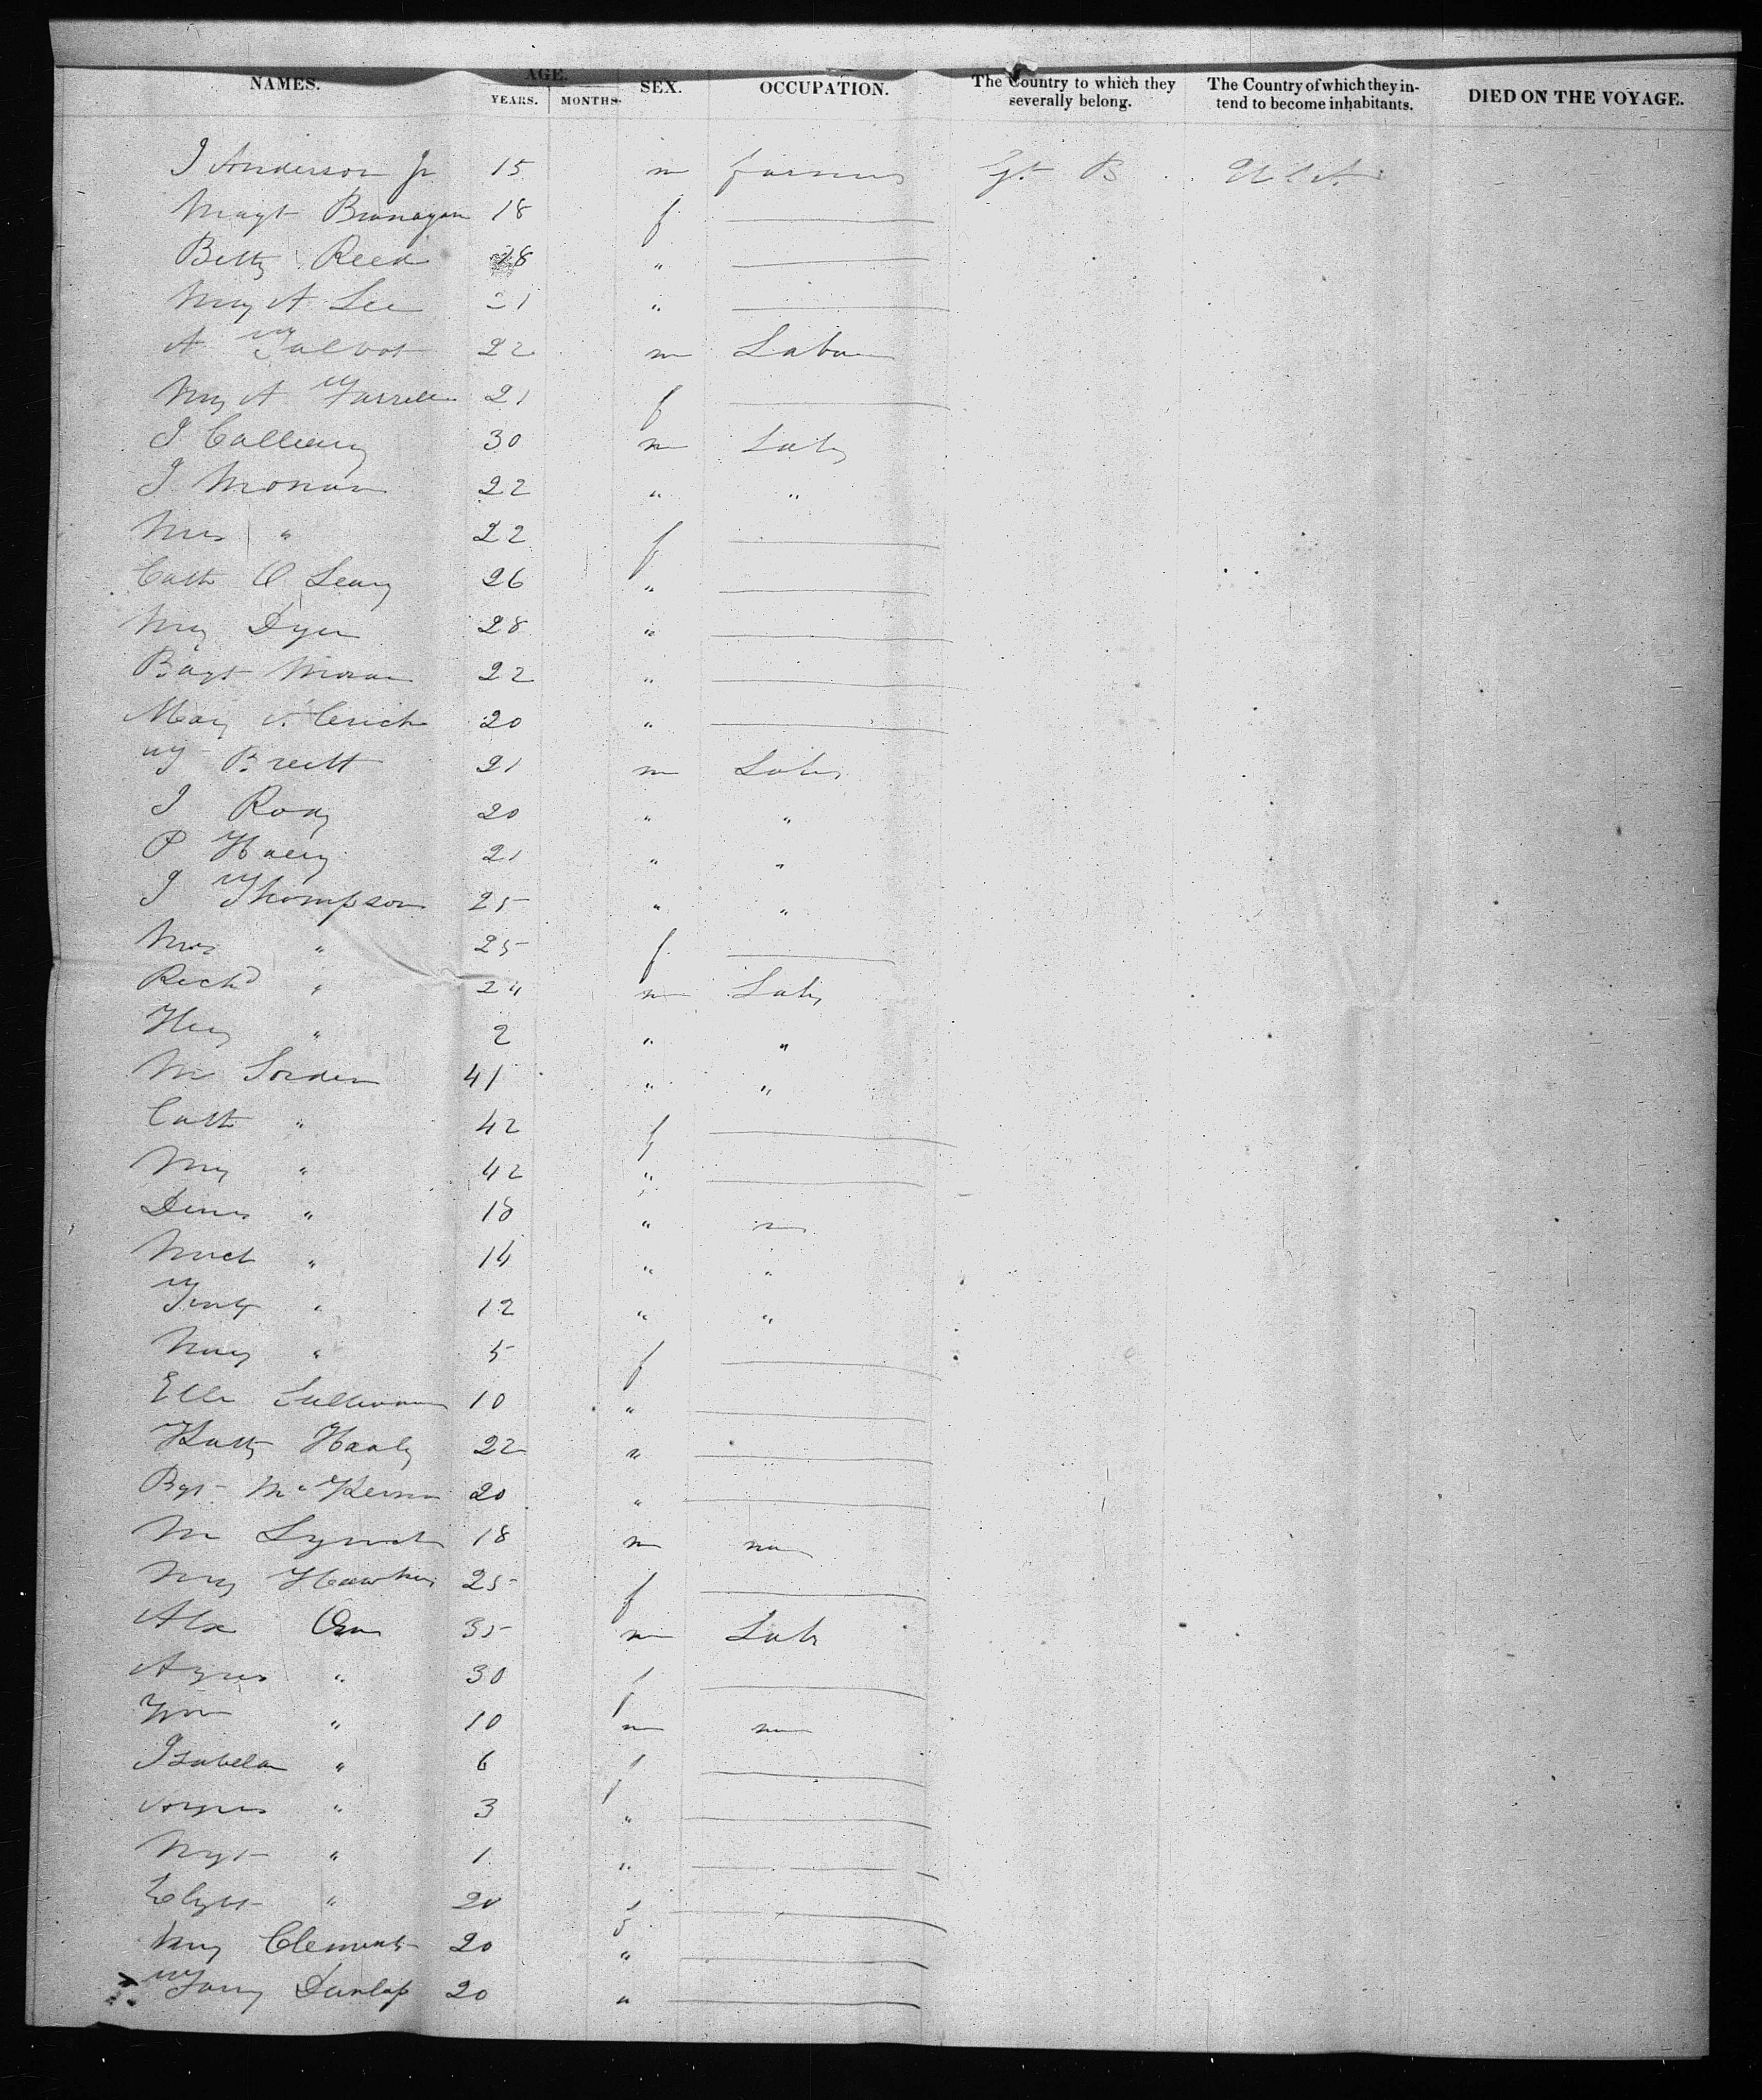 NAMES. AGE. YEARS. MONTHS. SEX. OCCUPATION. The Country to which they severally belong. The Country of which they intend to become inhabitants. DIED ON THE VOYAGE.
J Anderson Jr 15 m farmer Gt B U S A
Magt Branagan 18 f
Betty Reed 28 "
May A Lee 21 "
A Talbot 22 m Labour
My A Farrell 21 f
J 30 m Labr
J 22 " "
Mrs " 22 f
Cath O Leary 26 "
My Dyer 28 "
Bagt Moran 22 "
Mary A 20 "
T Brett 21 m Labr
J Rody 20 " "
P 21 " "
J Thompson 25 " "
Mrs " 25 f
Richd " 24 m Labr
Heny " 2 " "
M 41 " "
Cath " 42 f
My " 42 "
Denis " 18 "
Mich " 14 " "
Timty " 12 " "
Mary " 5 f
Elln Sullivan 10 "
Katty Healy 22 "
Bgt 20 "
M Lynch 18 m
My Hawkins 25 f
Alx 35 m Labr
Agnes " 30 f
" 10 m
Isabella " 6 f
Agnes " 3 "
Mgt " 1 "
" 20 f
My Clements 20 "
Fany Dunlap 20 "